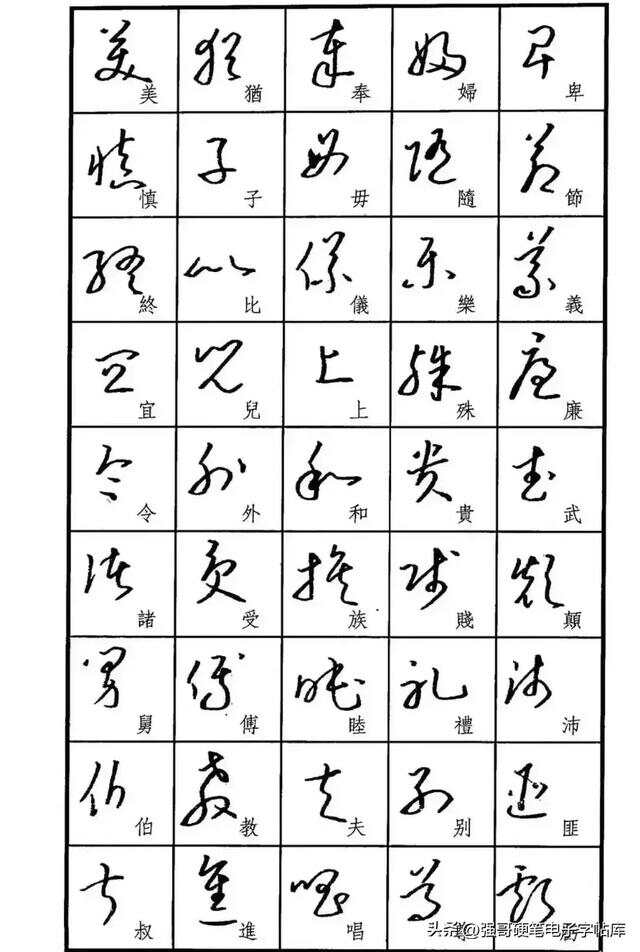 美慎終宜令諸舅伯叔
猶子比兒外受傅教進
奉毋儀上和族睦夫唱
婦隨樂殊貴賤禮别
卑節義廉武顛沛匪
头条@强哥硬笔电子字帖库